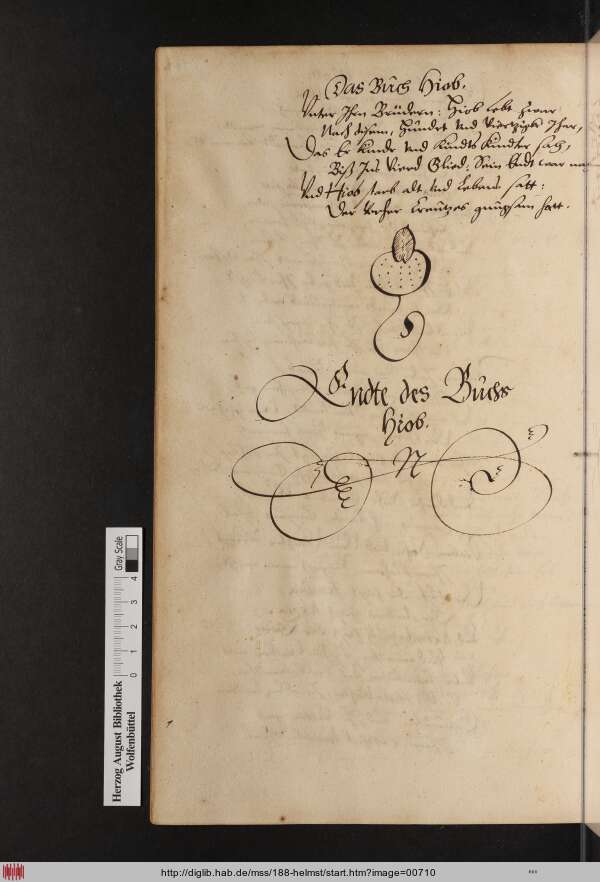 Das Buch Hiob.
Unter Ihn Brüdern: Hiob lebt
Nach disem, Hundert und Viertzigk Jhar,
Das Er Kinde und Kindts Kindter sah,
Biß Ins Vierd Glied: Sein Endt war
Und Hiob starb alt und Lebens satt:
Der vorher Creutzes gnugsam hatt.
Endte des Buchs
Hiob.
Herzog August Bibliothek
Wolfenbüttel
0 1 2 3 4
Gray Scale
http://diglib.hab.de/mss/188-helmst/start.htm?image=00710